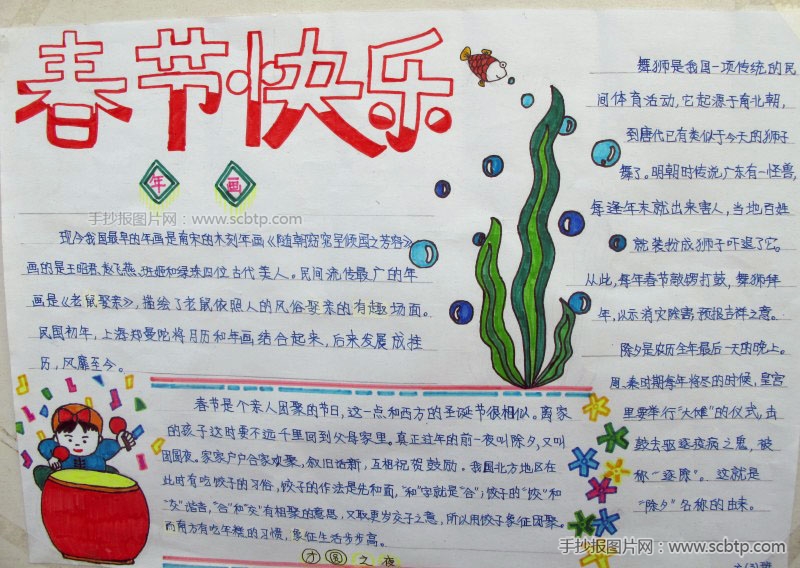 春节快乐
年画
手抄报图片网 www.scbtp.com
现今我国最早的年画是南宋的木刻年画《随朝窈窕呈倾国之芳容》
画的是王昭君、赵飞燕、班姬和绿珠四位古代美人。民间流传最广的年
画是《老鼠娶亲》，描绘了老鼠依照人的风俗娶亲的有趣场面。
民国初年，上海郑曼陀将月历和年画结合起来，后来发展成挂
历，风靡至今。
春节是个亲人团聚的节日，这一点和西方的圣诞节很相似。离家
的孩子这时要不远千里回到父母家里。真正过年的前一夜叫除夕，又叫
团圆夜。家家户户合家欢聚，叙旧话新，互相祝贺鼓励。我国北方地区在
此时有吃饺子的习俗，饺子的作法是先和面，"和"字就是"合"，饺子的"饺"和
"交"谐音，"合"和"交"有相聚的意思，又取更岁交子之意，所以用饺子象征团聚。
而南方有吃年糕的习惯，象征生活步步高。
才圆之夜
舞狮是我国一项传统的民
间体育活动，它起源于南北朝，
到唐代已有类似于今天的狮子
舞了。明朝时传说广东有一怪兽，
每逢年末就出来害人，当地百姓
就装扮成狮子吓退了它。
从此，每年春节敲锣打鼓，舞狮拜
年，以示消灾除害，预报吉祥之意。
除夕是农历全年最后一天的晚上。
周、秦时期每年将尽的时候，皇宫
里要举行"大傩"的仪式，击
鼓去驱逐疫病之鬼，被
称"逐除"。这就是
"除夕"名称的由来。
手抄报图片网 www.scbtp.com